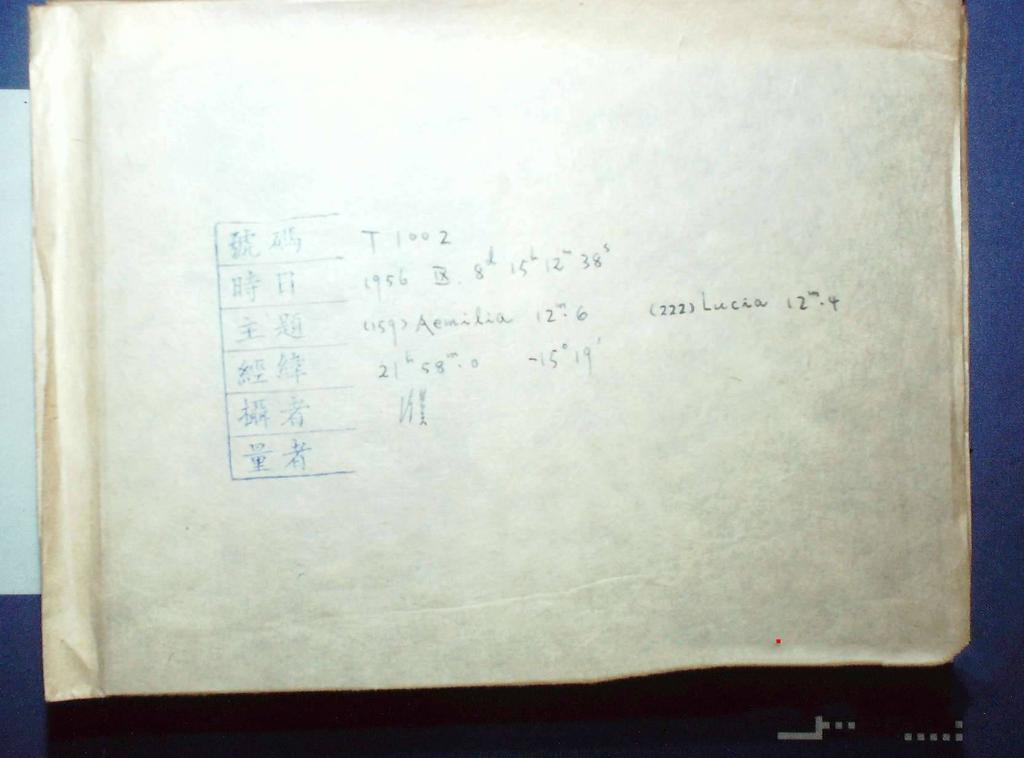 號碼 T 1002
時日 1956 Ⅸ. 8ᵈ 15ʰ 12ᵐ 38ˢ
主題 (159) Aemilia 12ᵐ.6 (222) Lucia 12ᵐ.4
經緯 21ʰ 58ᵐ.0 -15° 19'
攝者
量者